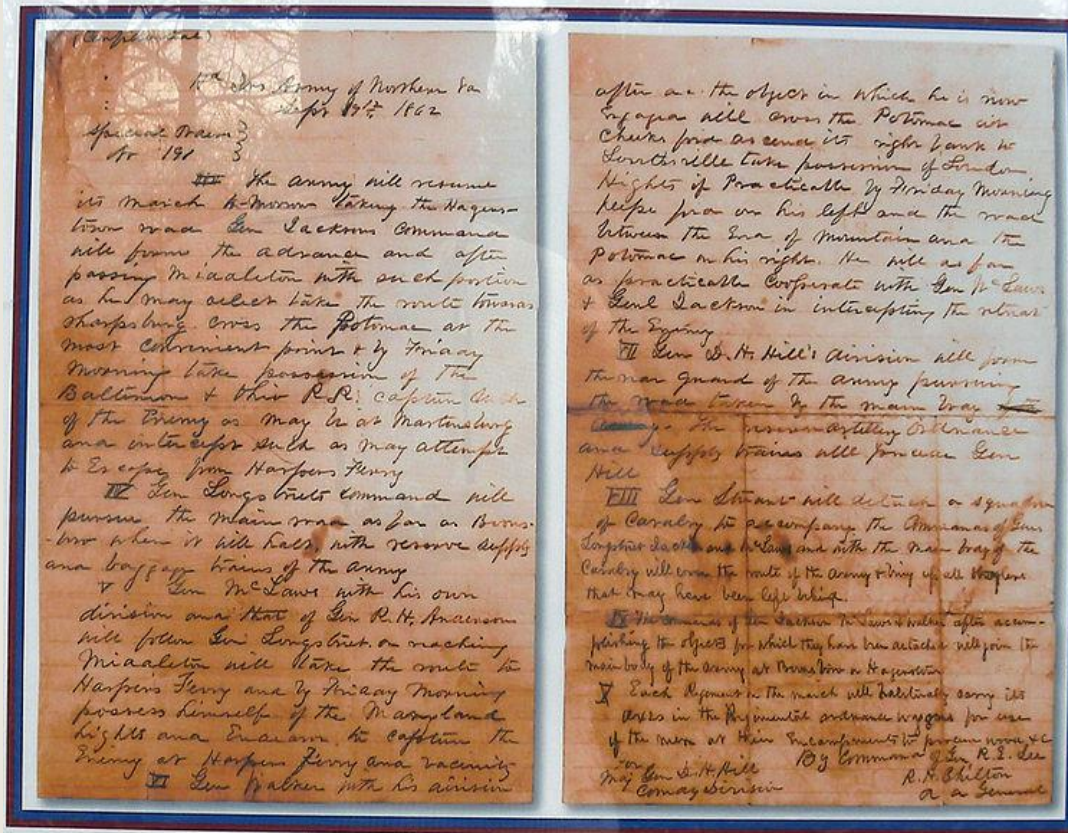 (Confidential)
Hd Qrs Army of Northern Va
Sept 9th 1862
Special Orders
No 191
III The army will resume
its march to-morrow taking the Hagers-
town road Gen Jacksons command
will form the advance and after
passing Middleton with such portion
as he may select take the route towards
sharpsburg cross the Potomac at the
most convenient point & by Friday
Morning take possession of the
Baltimore & Ohio R.R. capture such
of the Enemy as may be at Martinsburg
and intercept such as may attempt
to Escape from Harpers Ferry
IV Gen Longstreets command will
pursue the main road as far as Boons-
boro when it will halt, with reserve supply
and baggage trains of the army
V Gen McLaws with his own
division and that of Gen R.H. Andersons
will follow Gen Longstreet. on reaching
Middleton will take the route to
Harpers Ferry and by Friday Morning
possess himself of the Maryland
hights and Endeavor to capture the
Enemy at Harpers Ferry and vacinity
VI Gen Walker with his division
after the object in which he is now
Engaged will cross the Potomac at
Cheeks ford ascend its right bank to
Lovettsville take possession of Loudon
Hights if Practicable by Friday Morning
Keeps ford on his left and the road
between the End of Mountain and the
Potomac on his right. He will as far
as practicable Cooperate with Gen McLaws
& Genl Jackson in intercepting the retreat
of the Enemy
VII Gen D.H. Hill's division will form
the rear guard of the army pursuing
the road taken by the main body
army. The reserve artillery Ordnance
and supply trains will precede Gen
Hill
VIII Gen Stuart will detach a squadron
of Cavalry to accompany the Commands of Gens
Longstreet Jackson and McLaws and with the main body of the
Cavalry will cover the route of the Army & bring up all straglers
that may have been left behind.
IX The commands of Gen Jackson McLaws & Walker after accom-
plishing the objects for which they have been detached will join the
main body of the army at Boonsboro or Hagerstown
X Each Regiment on the march will habitually carry its
axes in the Regimental ordnance waggons for use
of the men at their Encampments to procure wood &c
By Command of Gen R.E. Lee
For
Maj Gen D.H. Hill
R.H. Chilton
Comdg Division
A A General